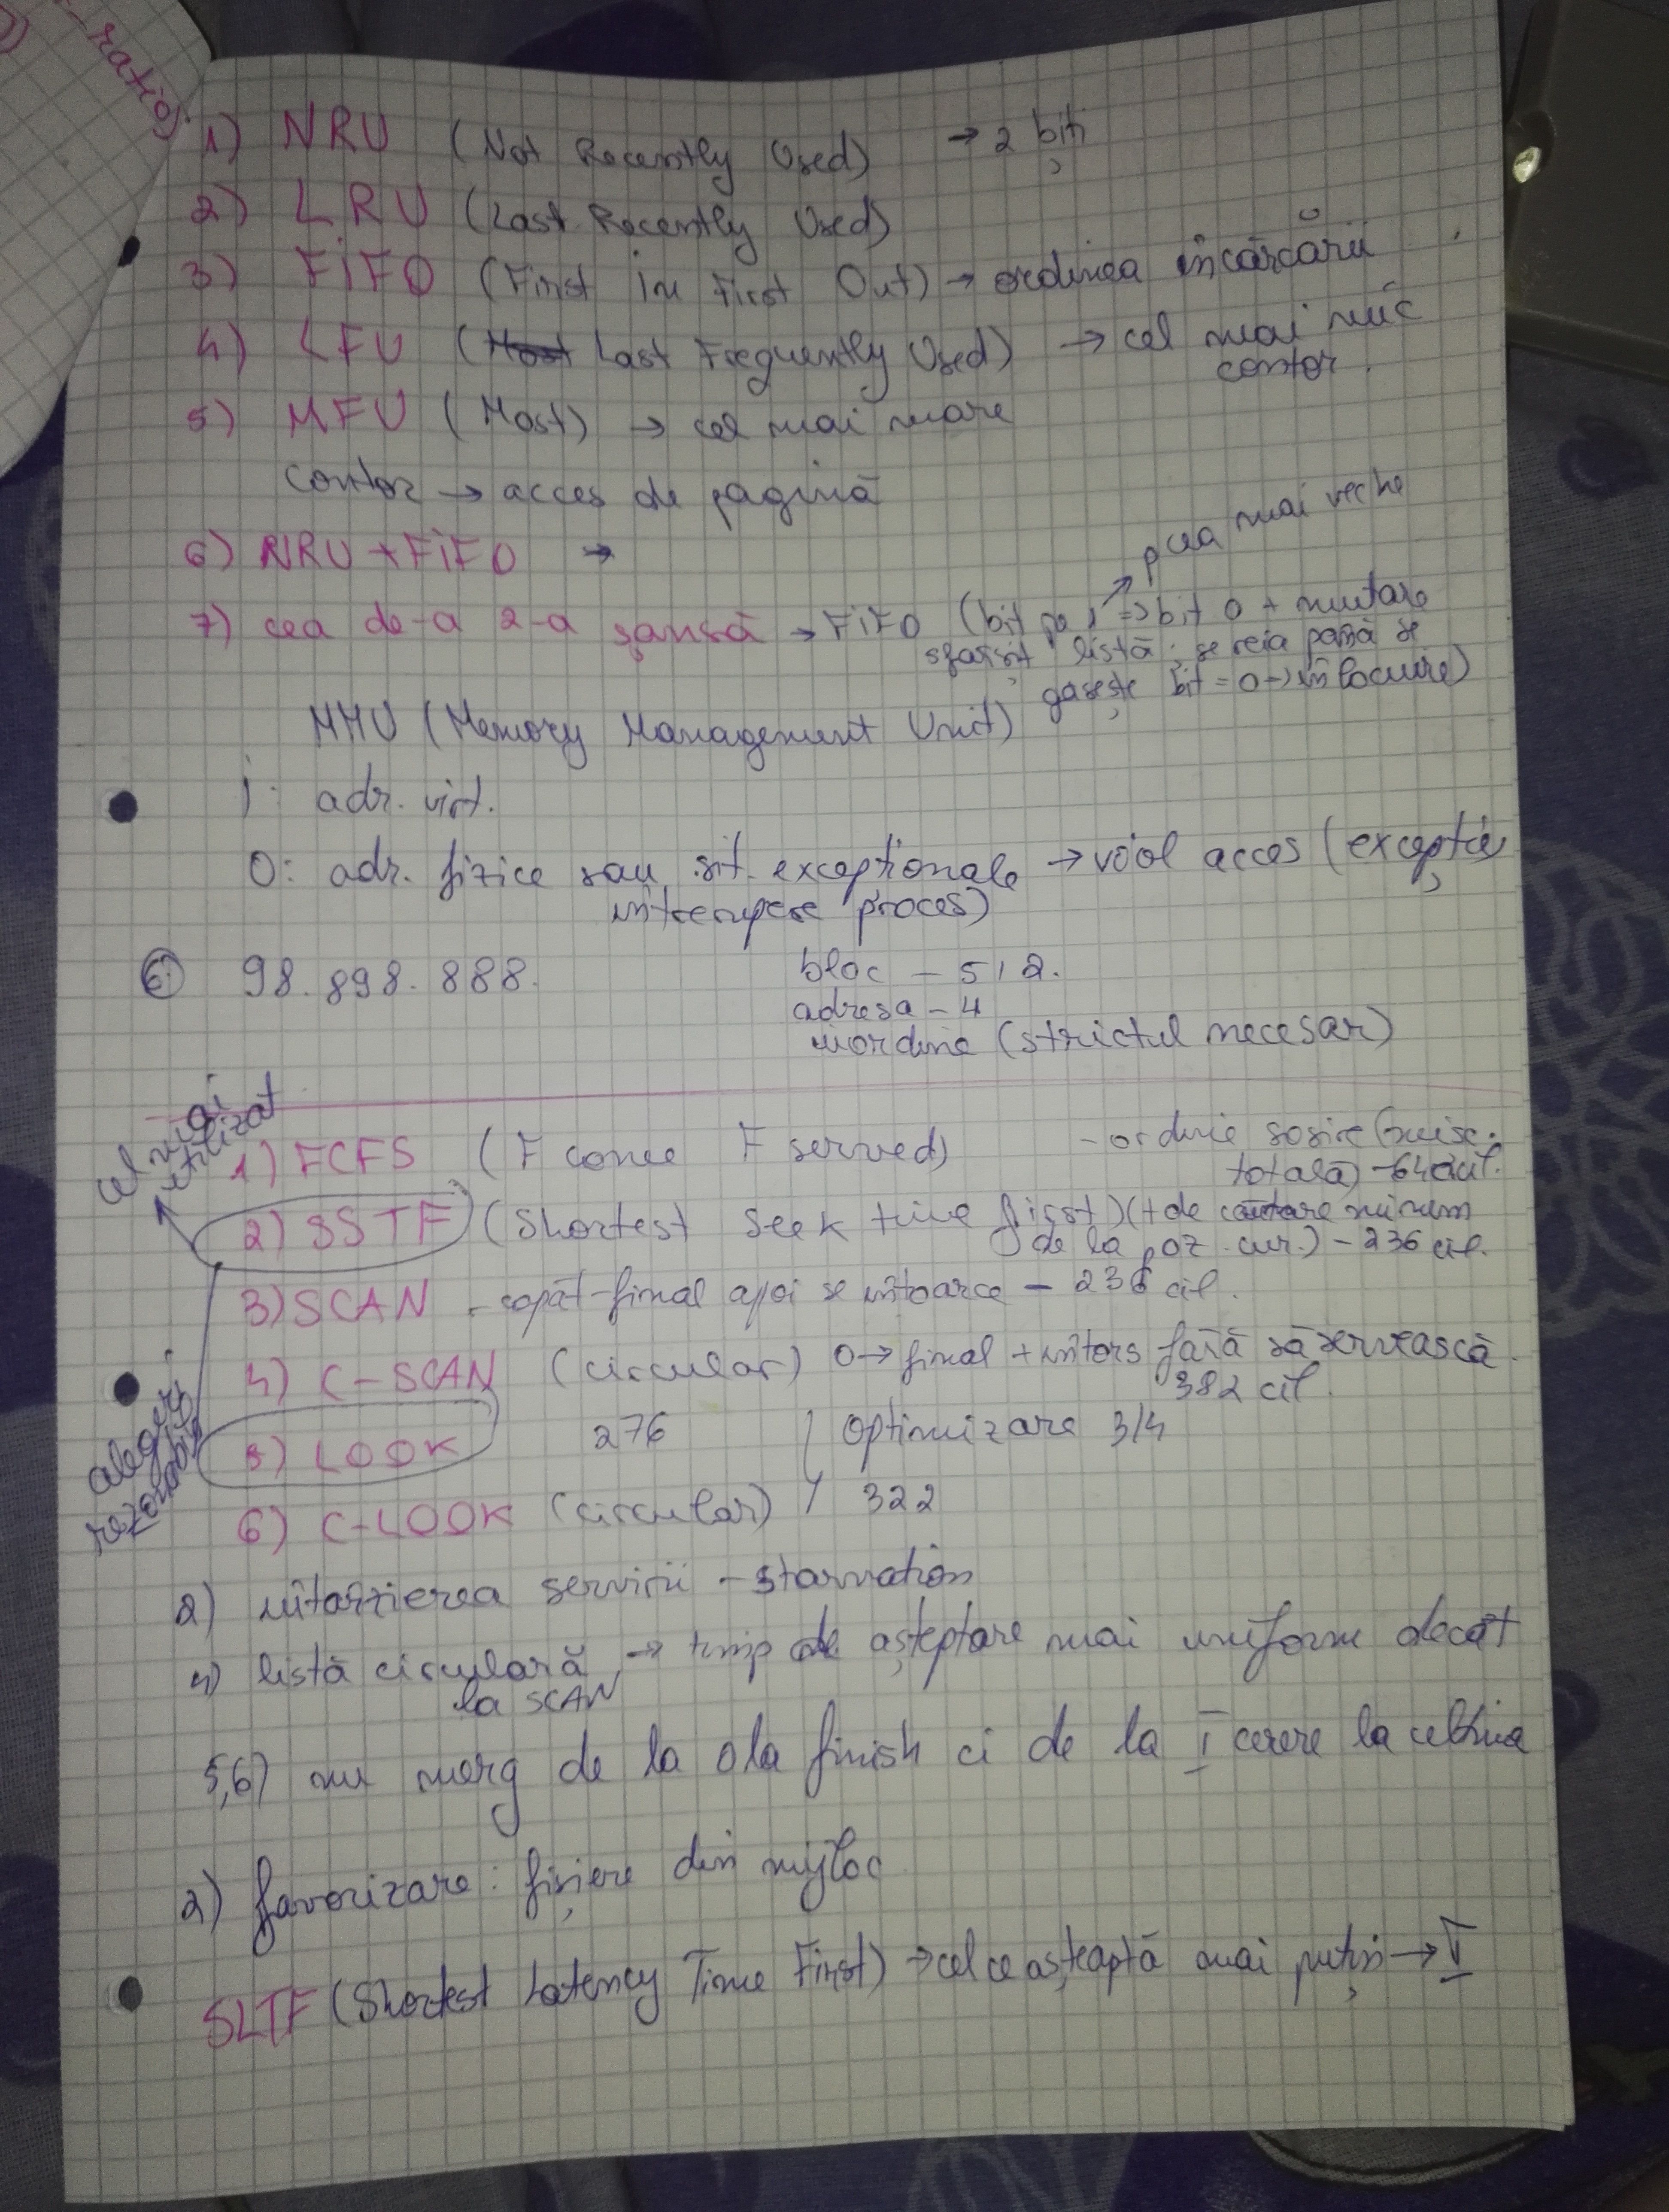 ratio
1) NRU (Not Recently Used) → 2 biți
2) LRU (Last Recently Used)
3) FiFO (First in First Out) → ordinea încărcării
4) LFU (Last Frequently Used) → cel mai mic
contor.
5) MFU (Most) → cel mai mare
contor → acces de pagină
6) NRU + FiFO →
cea mai veche
7) cea de-a 2-a șansă → FiFO (bit pe 1 => bit 0 + mutare
sfârșit listă; se reia până se
găsește bit = 0 → înlocuire)
MMU (Memory Management Unit)
i: adr. virt.
O: adr. fizice sau sit. excepționale → viol acces (excepție,
întrerupere proces)
6. 98.898.888. bloc – 512.
adresa – 4
inordine (strictul necesar)
cel mai
utilizat
1) FCFS (F come F served) - ordine sosire (misc.
totală) – 640 cil.
2) SSTF (Shortest Seek time first) (t de căutare minim
de la poz. cur.) – 236 cil.
3) SCAN - capăt-final apoi se întoarce – 236 cil.
4) C-SCAN (circular) 0 → final + întors fără să servească.
382 cil.
alegeri
rezonabile
5) LOOK 276 } Optimizare 3/4
6) C-LOOK (circular) 322
2) întârzierea servirii – starvation
4) listă circulară → timp de așteptare mai uniform decât
la SCAN
5,6) nu merg de la 0 la finish ci de la I cerere la ultima
2) favorizare: fișiere din mijloc
SLTF (Shortest Latency Time First) → cel ce așteaptă mai puțin → I